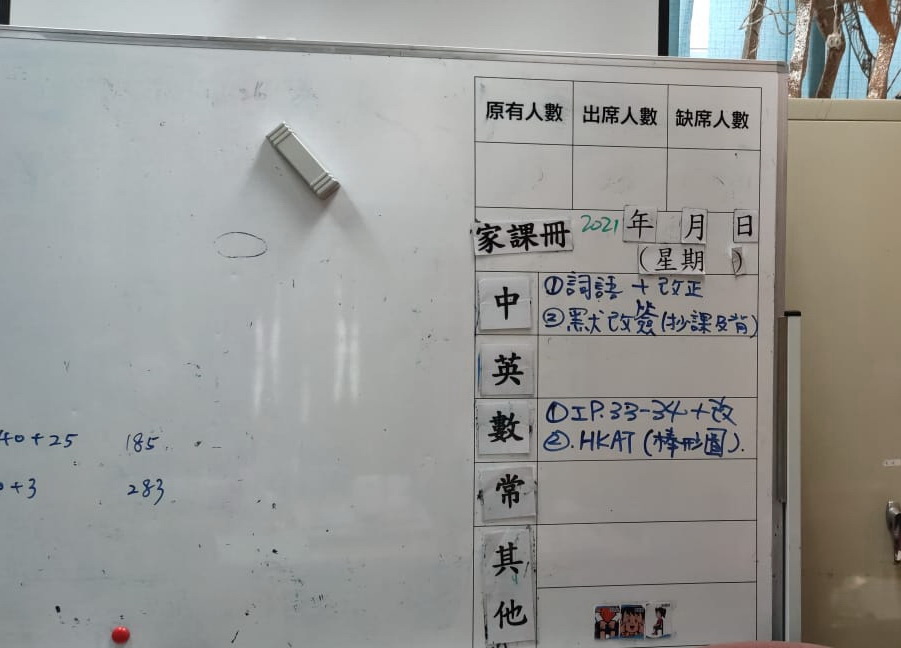 原有人數 出席人數 缺席人數
家課冊 2021 年 月 日
(星期 )
中 ①詞語 + 改正
②默改簽(抄課及背)
英
數 ①IP.33-34+改
②.HKAT (棒形圖).
常
其他
40+25 185
+3 283